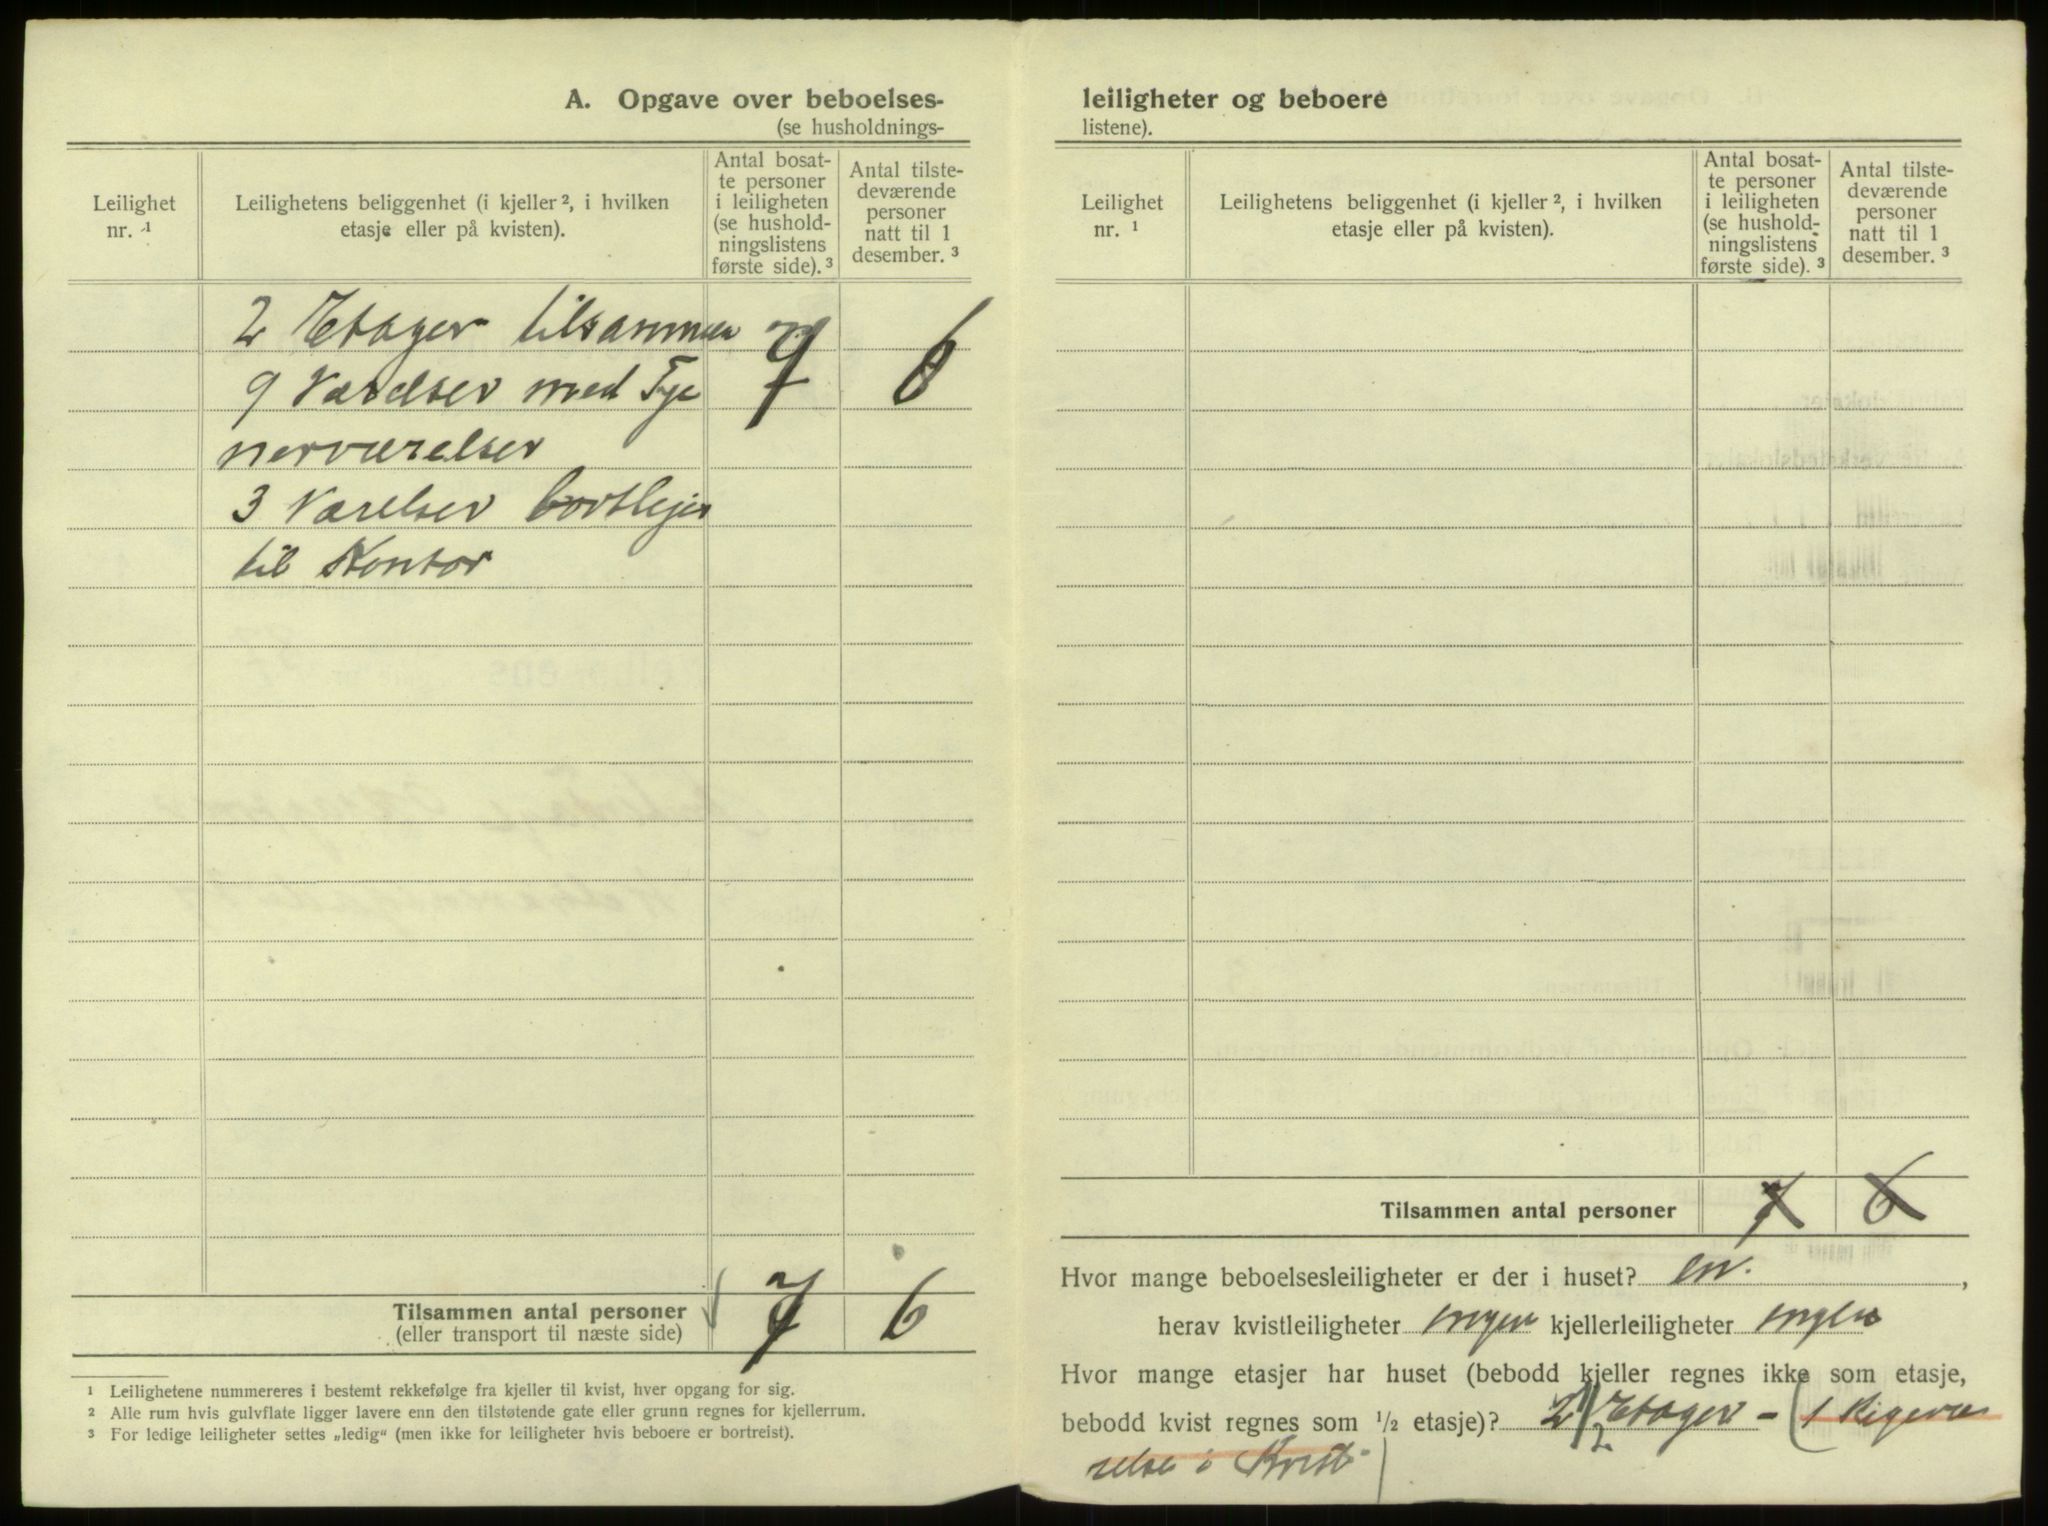 A. Opgave over beboelses-
(se husholdnings-
Leilighet nr. ¹
Leilighetens beliggenhet (i kjeller ², i hvilken etasje eller på kvisten).
Antal bosat-
te personer
i leiligheten
(se hushold-
ningslistens
første side). ³
Antal tilste-
deværende
personer
natt til 1
desember. ³
2 Etager tilsammen 7 6
9 Værelser med Tje
nerværelser
3 Værelser bortlejes
til Kontor
Tilsammen antal personer 7 6
(eller transport til næste side)
¹ Leilighetene nummereres i bestemt rekkefølge fra kjeller til kvist, hver opgang for sig.
² Alle rum hvis gulvflate ligger lavere enn den tilstøtende gate eller grunn regnes for kjellerrum.
³ For ledige leiligheter settes „ledig“ (men ikke for leiligheter hvis beboere er bortreist).
leiligheter og beboere
listene).
Leilighet nr. ¹
Leilighetens beliggenhet (i kjeller ², i hvilken etasje eller på kvisten).
Antal bosat-
te personer
i leiligheten
(se hushold-
ningslistens
første side). ³
Antal tilste-
deværende
personer
natt til 1
desember. ³
Tilsammen antal personer 7 6
Hvor mange beboelsesleiligheter er der i huset? en.,
herav kvistleiligheter ingen kjellerleiligheter ingen
Hvor mange etasjer har huset (bebodd kjeller regnes ikke som etasje,
bebodd kvist regnes som ½ etasje)? 2 1/2 Etager - (1 Pigevæ
relse i Kvist)